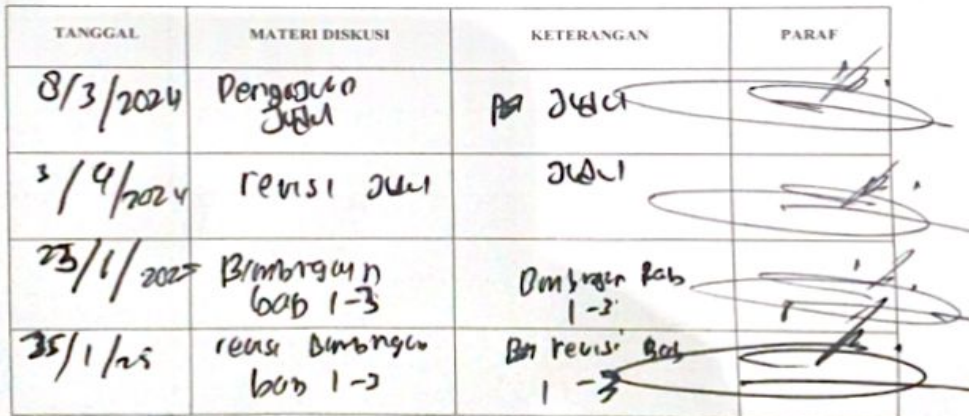 TANGGAL MATERI DISKUSI KETERANGAN PARAF
8/3/2024 Pengajuan Judul Judul
3/4/2024 revisi Judul Judul
23/1/2025 Bimbingan bab 1-3 Bimbingan Bab 1-3
25/1/25 revisi Bimbingan bab 1-3 revisi Bab 1-3